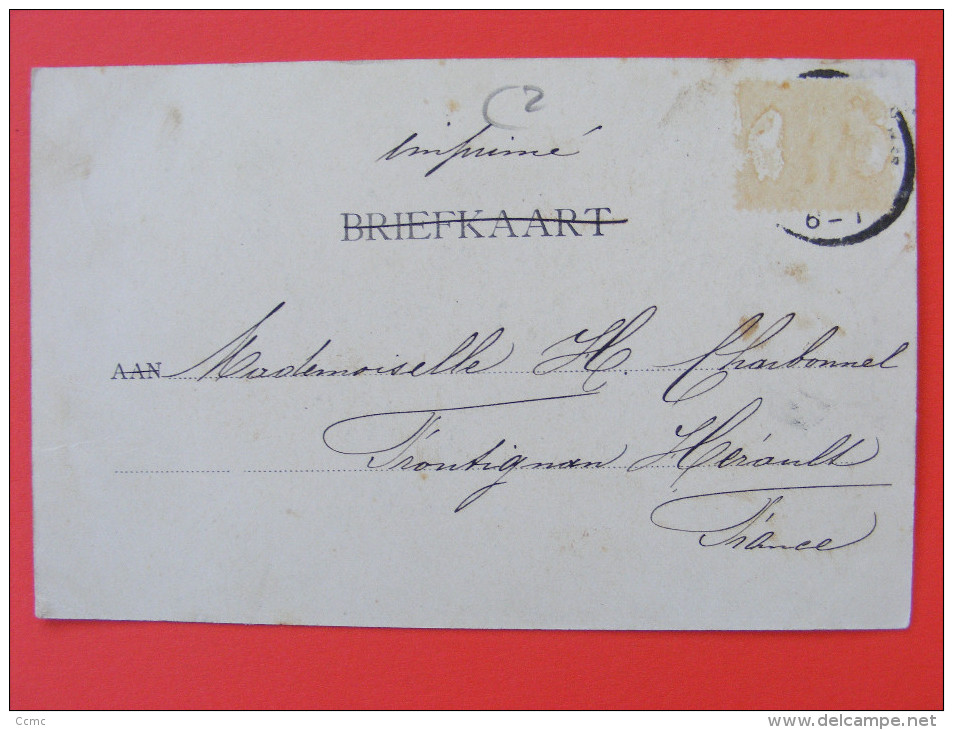 C2
imprimé
BRIEFKAART
6-1
AAN Mademoiselle H. Charbonnel
Frontignan Hérault
France
Ccmc
www.delcampe.net